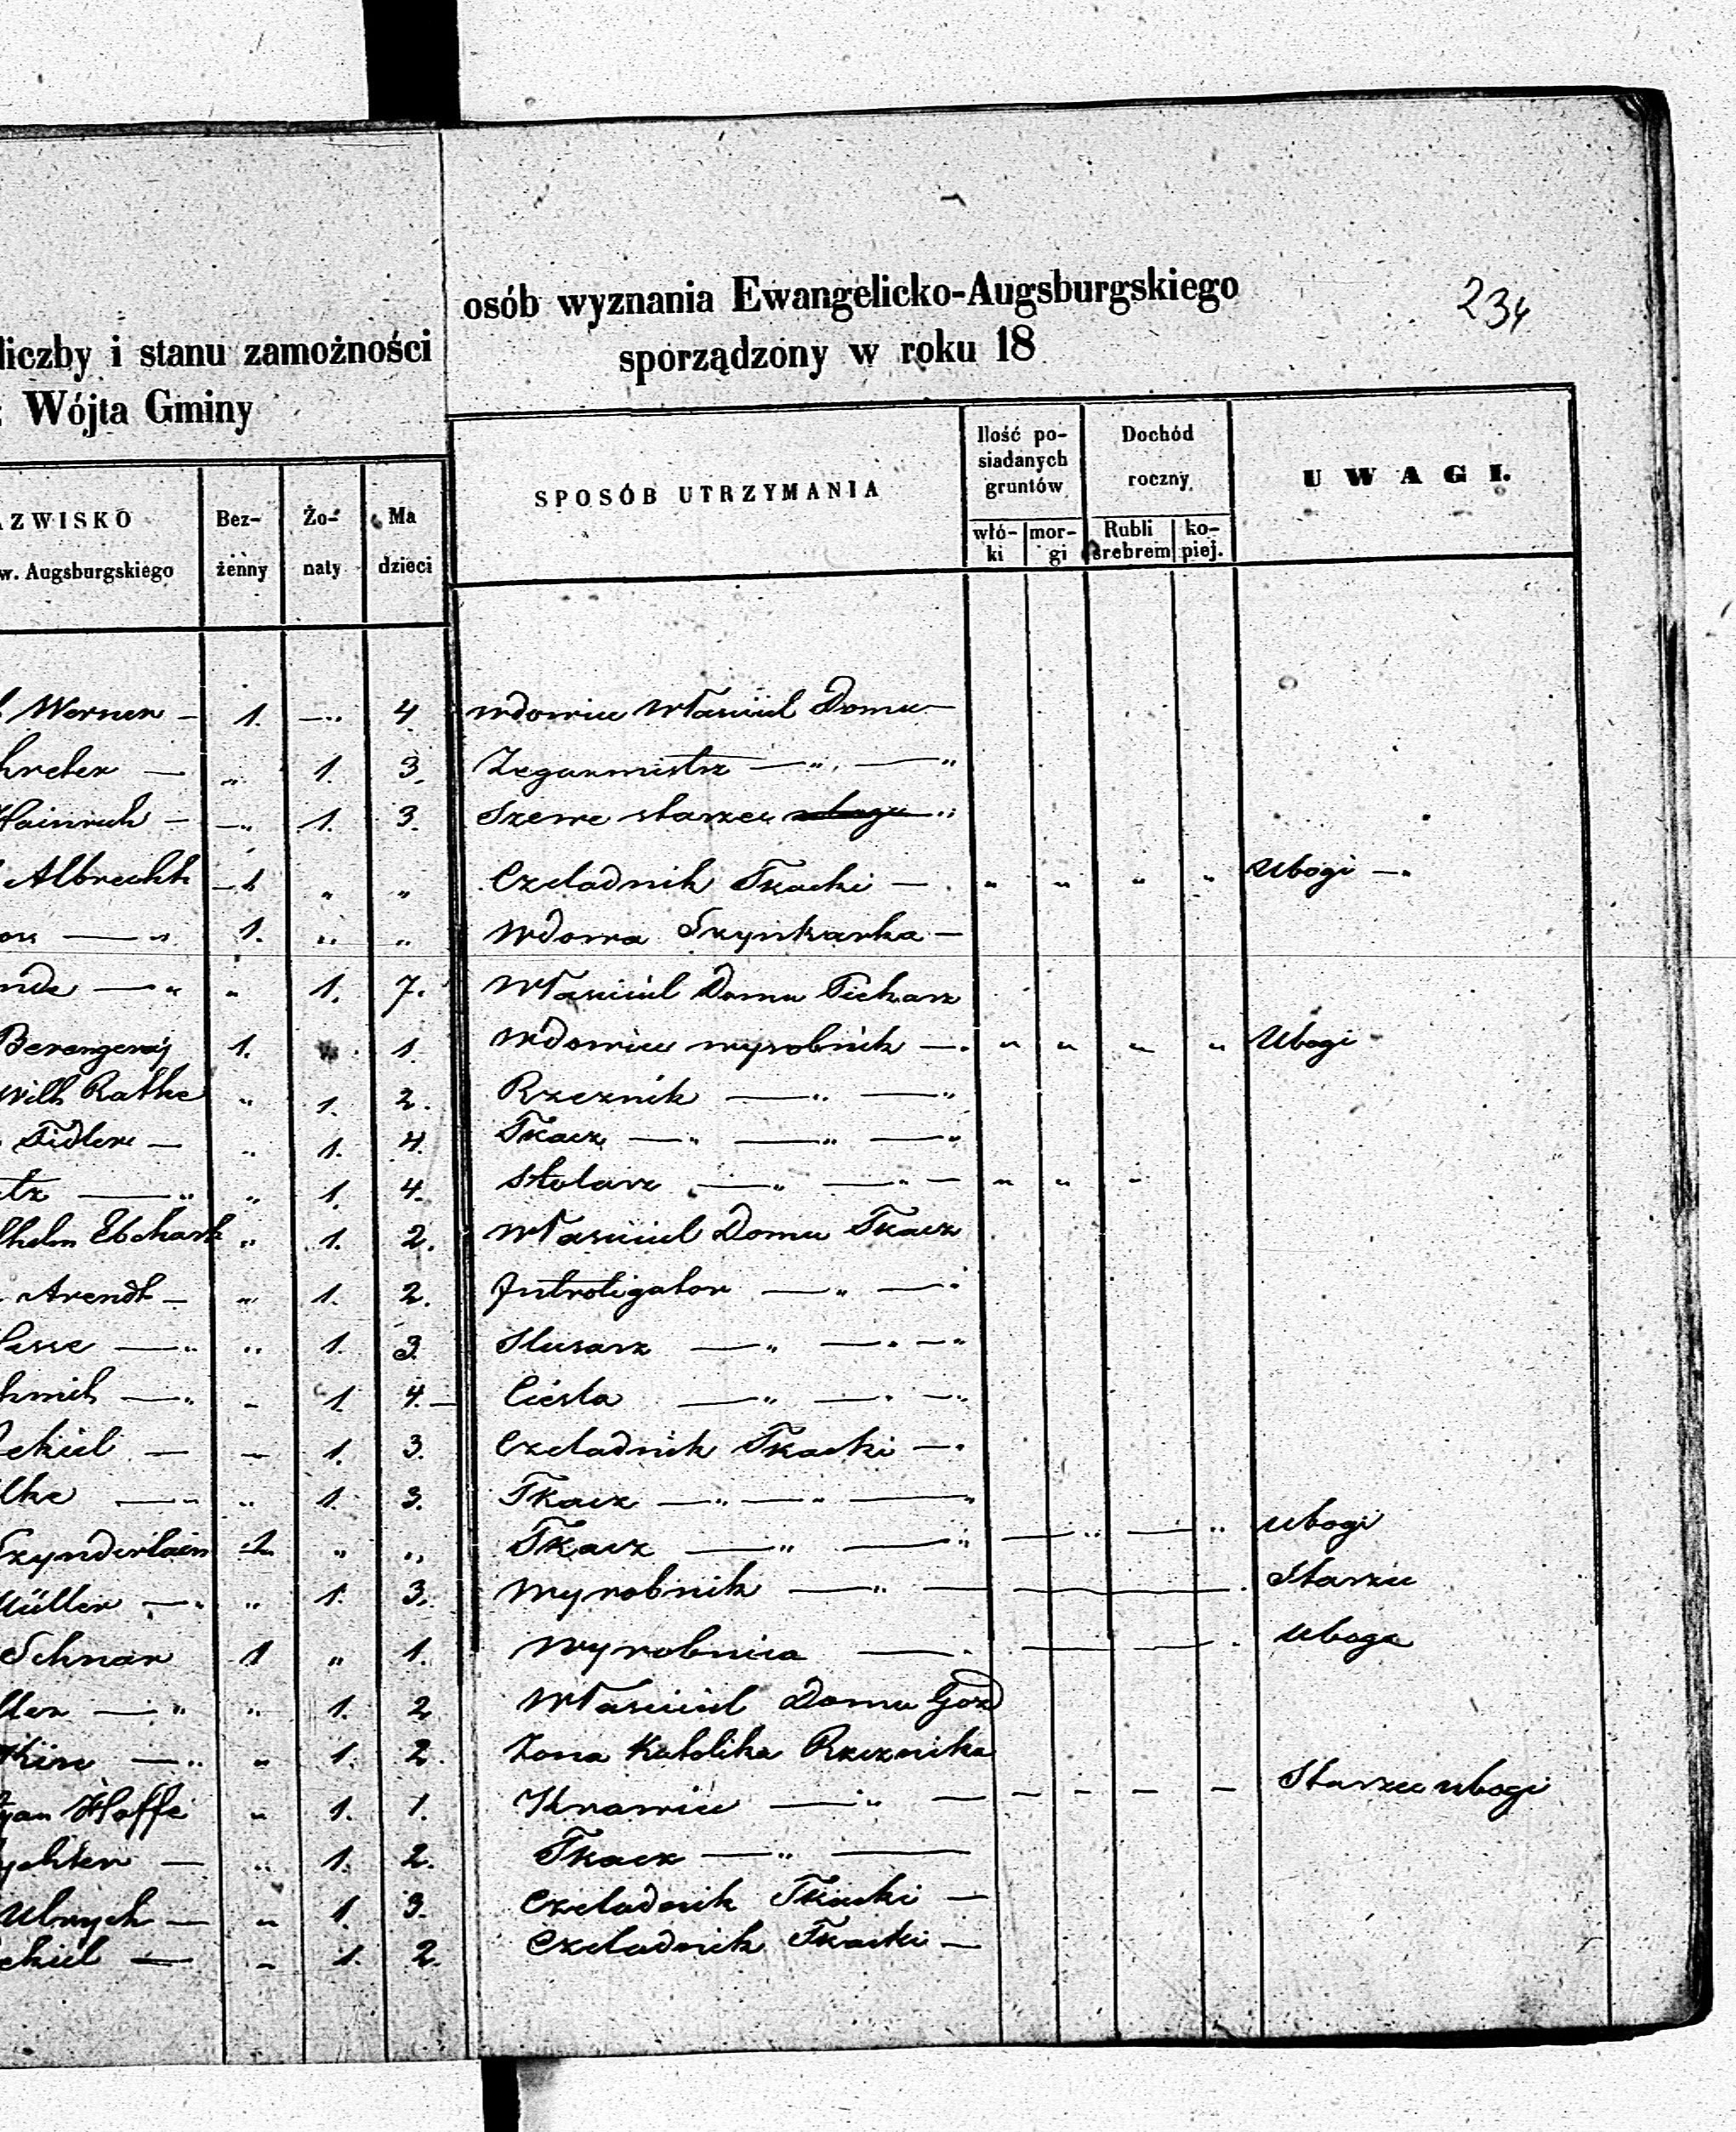 234
osób wyznania Ewangelicko-Augsburgskiego
liczby i stanu zamożności sporządzony w roku 18
Wójta Gminy
AZWISKO Bez- Żo- Ma SPOSÓB UTRZYMANIA Ilość po- Dochód UWAGI.
w. Augsburgskiego żenny naty dzieci siadanych roczny
gruntów
włó- mor- Rubli ko-
ki gi srebrem piej.
Werner — 1. —„ 4 Wdowiec Właściciel Domu —
hreter — „ 1. 3. Zegarmistrz —„ —„
Hainrich — —„ 1. 3. Szewc starzec
Albrecht — 1 „ „ Czeladnik Tkacki — „ „ „ „ Ubogi —„
on —„ 1. „ „ Wdowa Szynkarka —
nde —„ „ 1. 7. Właściciel Domu Piekarz
1. 1. Wdowiec wyrobnik —. „ „ „ „ Ubogi
Wilh Rathe „ 1. 2. Rzeznik —„ —„
Fidler — „ 1. 4. Tkacz —„ —„ —„
tz —„ „ 1. 4. Stolarz —„ —„ — „ „ „
lhelm „ 1. 2. Właściciel Domu Tkacz
Arendt — „ 1. 2. Introligator —„ —„
Hasse —„ „ 1. 3. Slusarz —„ —„ —„
hmit —„ „ 1. 4. — Ciesla —„ —„ —„
ekiel — „ 1. 3. Czeladnik Tkacki —„
lke —„ „ 1. 3. Tkacz —„ —„ —„
1. „ „ Tkacz —„ —„ —„ —„ Ubogi
Müller —„ „ 1. 3. Wyrobnik —„ — — Starzec
Schnar 1 „ 1. Wyrobnica —. —. Uboga
ller —„ „ 1. 2 Właściciel Domu
—„ „ 1. 2. Zona Katolika Rzeznika
yan Hoffe „ 1. 1. Krawiec —„ — — — — — Starzec ubogi
ychter — „ 1. 2. Tkacz —„ —
Ulrych — „ 1. 3. Czeladnik Tkacki —
ekiel — „ 1. 2. Czeladnik Tkacki —